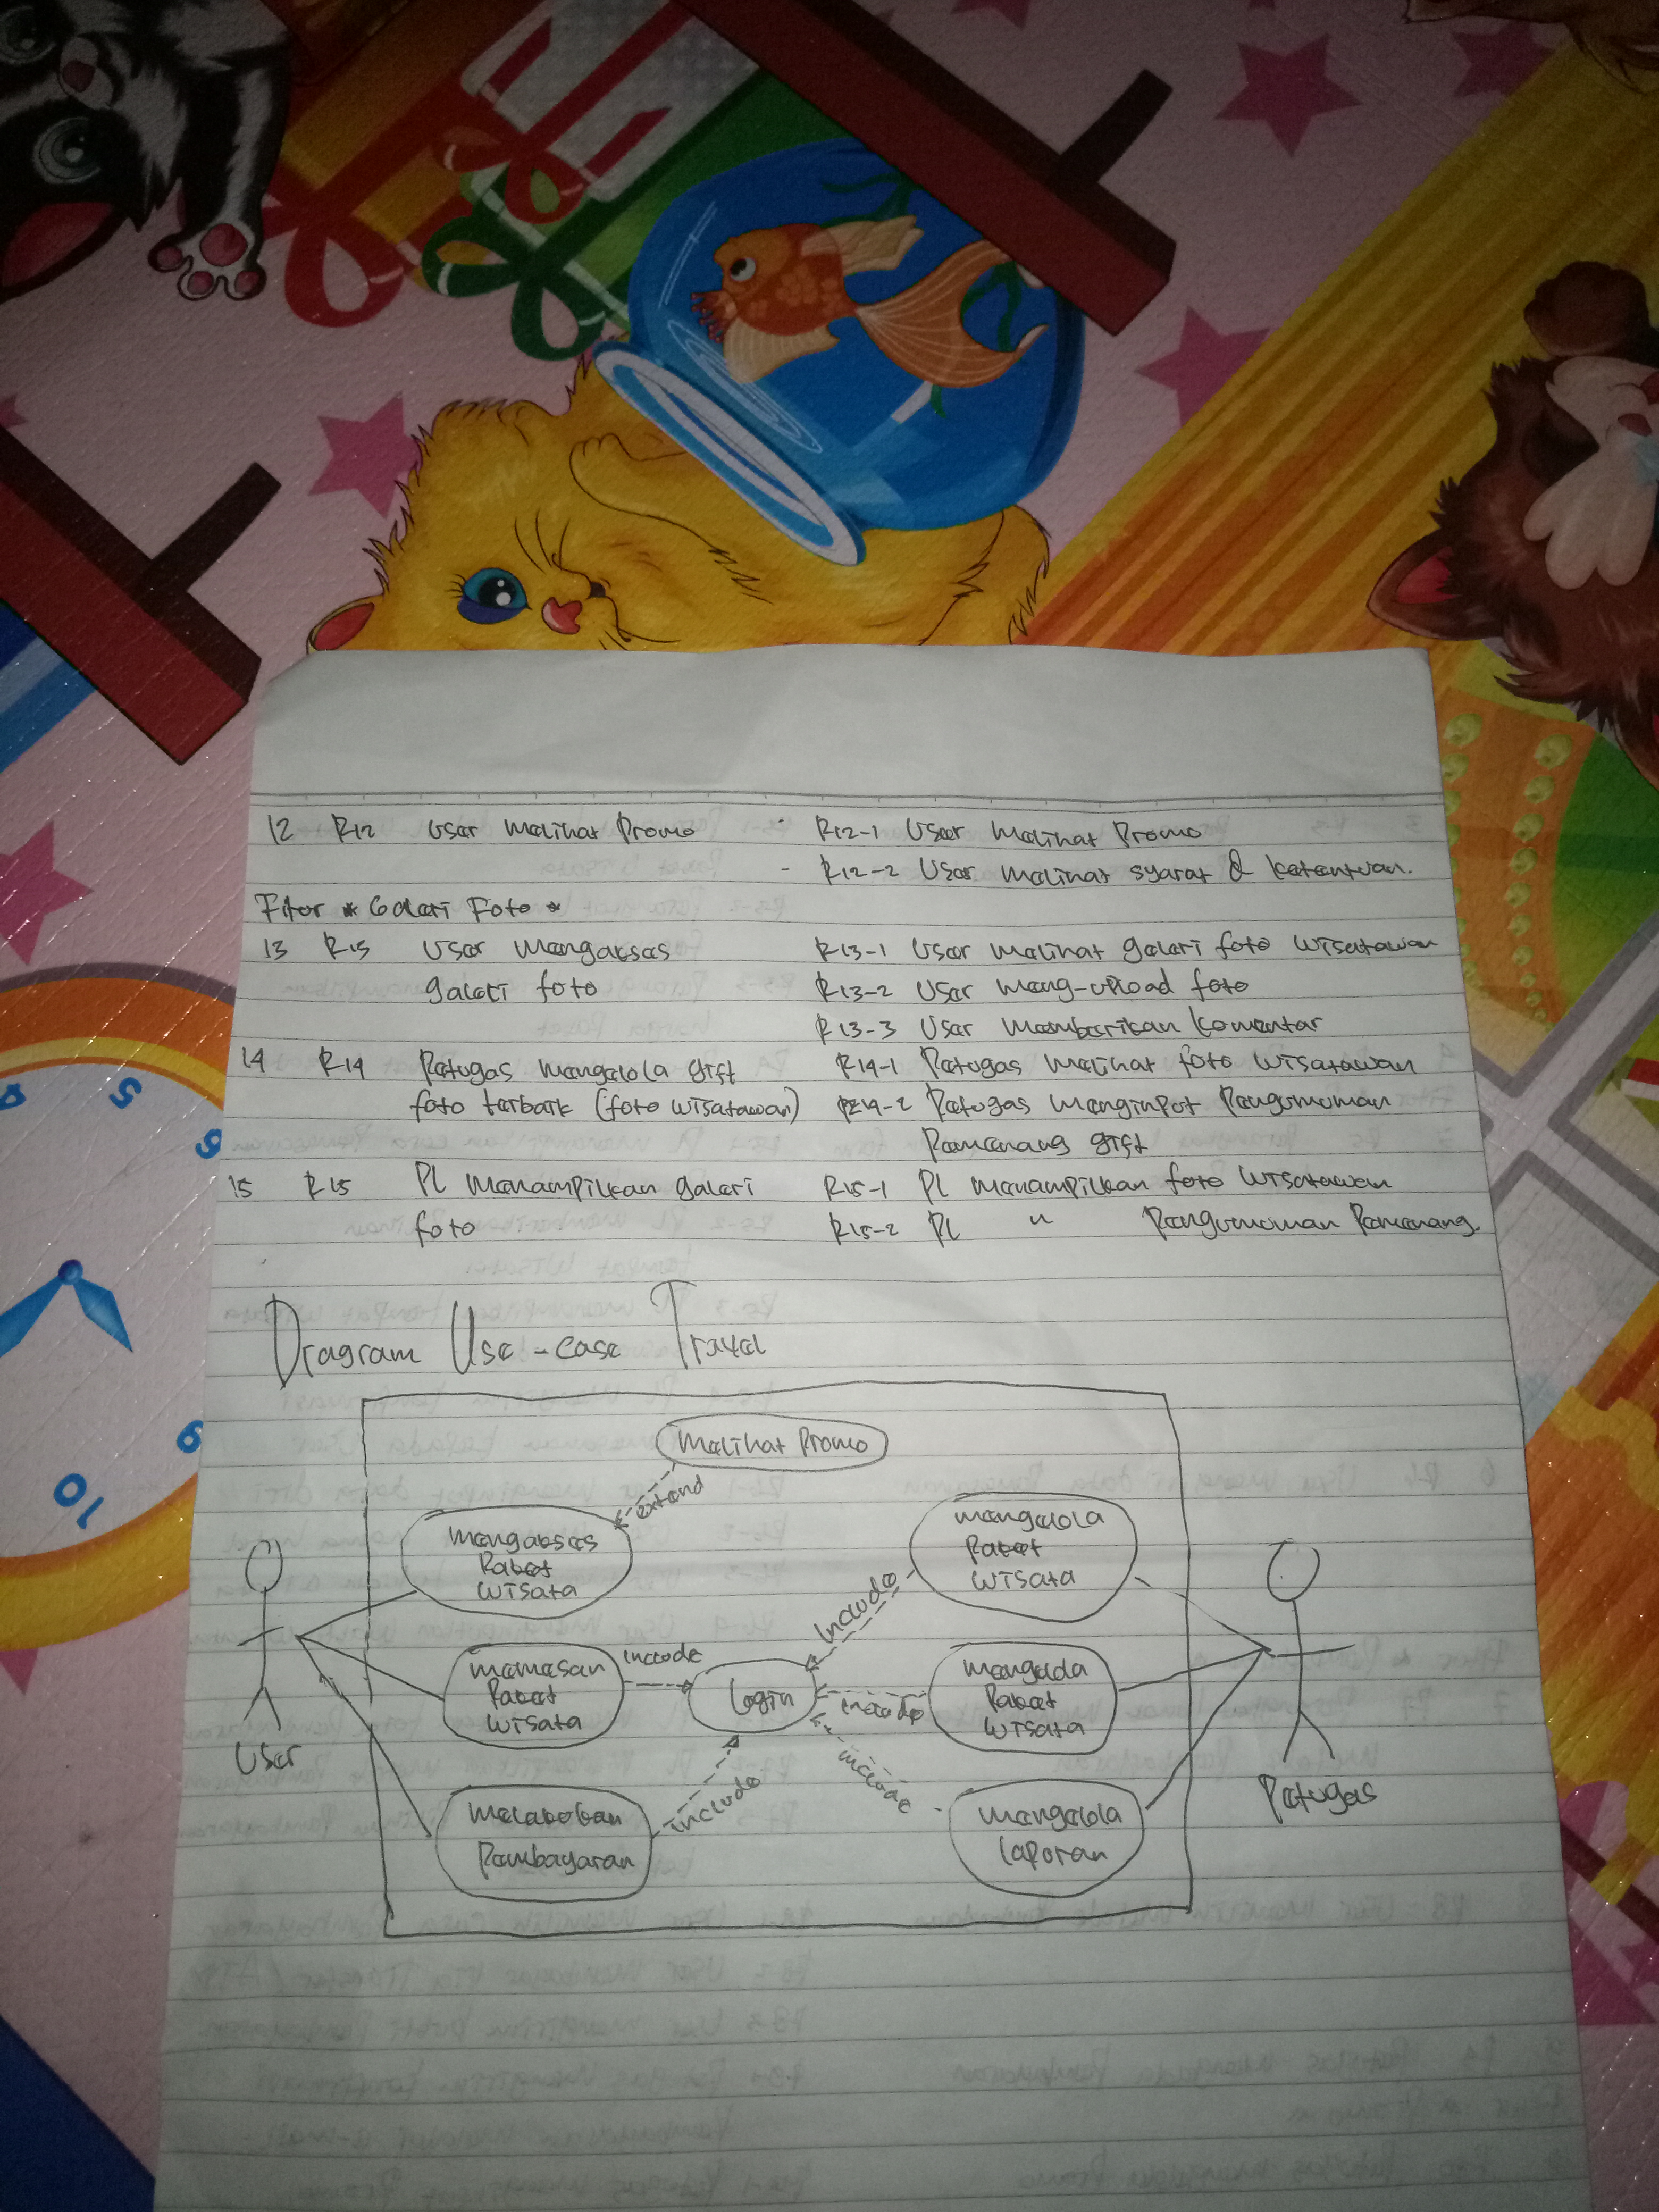 12 R12 User Melihat Promo - R12-1 User Melihat Promo
- R12-2 User Melihat syarat & ketentuan.
Fitur * Galeri Foto *
13 R13 User Mengakses R13-1 User Melihat galeri foto wisatawan
galeri foto R13-2 User Meng-upload foto
R13-3 User Memberikan komentar
14 R14 Petugas mengelola gift R14-1 Petugas Melihat foto wisatawan
foto terbaik (foto wisatawan) R14-2 Petugas Menginput Pengumuman
Pemenang gift
15 R15 PL Menampilkan galeri R15-1 PL Menampilkan foto wisatawan
foto R15-2 PL " Pengumuman Pemenang.
Diagram Use-case Travel
Melihat Promo
extend
Mengakses
Paket
wisata
mengelola
Paket
wisata
include
memesan
Paket
wisata
include
Login
include
Paket
wisata
User
include
include
Melakukan
Pembayaran
mengelola
laporan
Petugas
5
10